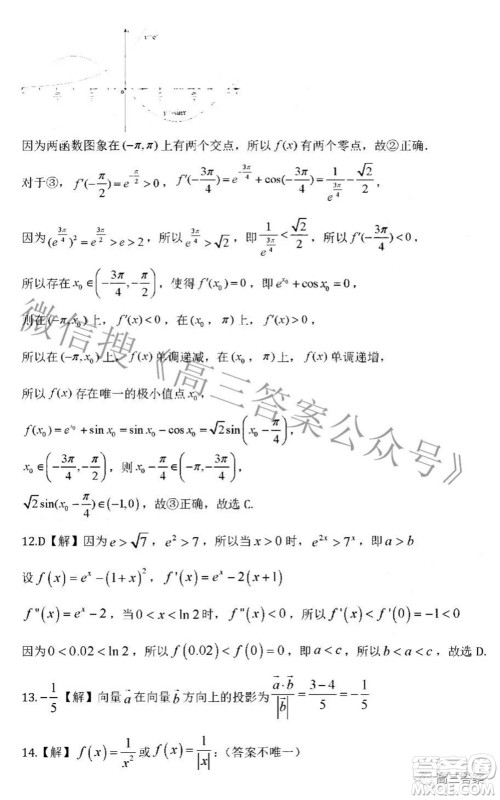 因为两函数图象在 (-π, π) 上有两个交点，所以 f(x) 有两个零点，故②正确．
对于③，f'(-π/2) = e^(-π/2) > 0，f'(-3π/4) = e^(-3π/4) + cos(-3π/4) = 1/e^(3π/4) - √2/2，
因为 (e^(3π/4))² = e^(3π/2) > e > 2，所以 e^(3π/4) > √2，即 1/e^(3π/4) < √2/2，所以 f'(-3π/4) < 0，
所以存在 x₀ ∈ (-3π/4, -π/2)，使得 f'(x₀) = 0，即 e^(x₀) + cos x₀ = 0，
则在 (-π, x₀) 上，f'(x) < 0，在 (x₀，π) 上，f'(x) > 0，
所以在 (-π, x₀) 上，f(x) 单调递减，在 (x₀，π) 上，f(x) 单调递增，
所以 f(x) 存在唯一的极小值点 x₀．
f(x₀) = e^(x₀) + sin x₀ = sin x₀ - cos x₀ = √2sin(x₀ - π/4)，
x₀ ∈ (-3π/4, -π/2)，则 x₀ - π/4 ∈
√2sin(x₀ - π/4) ∈ (-1, 0)，故③正确，故选 C.
12.D【解】因为 e > √7，e² > 7，所以当 x > 0 时，e^(2x) > 7^x，即 a > b
设 f(x) = e^x - (1+x)²，f'(x) = e^x - 2(x+1)
f''(x) = e^x - 2，当 0 < x < ln 2 时，f''(x) < 0，所以 f'(x) < f'(0) = -1 < 0
因为 0 < 0.02 < ln 2，所以 f(0.02) < f(0) = 0，即 a < c，所以 b < a < c，故选 D.
13. -1/5【解】向量 a⃗ 在向量 b⃗ 方向上的投影为 (a⃗·b⃗)/|b⃗| = (3-4)/5 = -1/5
14.【解】f(x) = 1/x² 或 f(x) = 1/|x|：(答案不唯一)
微信搜《高三答案公众号》
高三答案